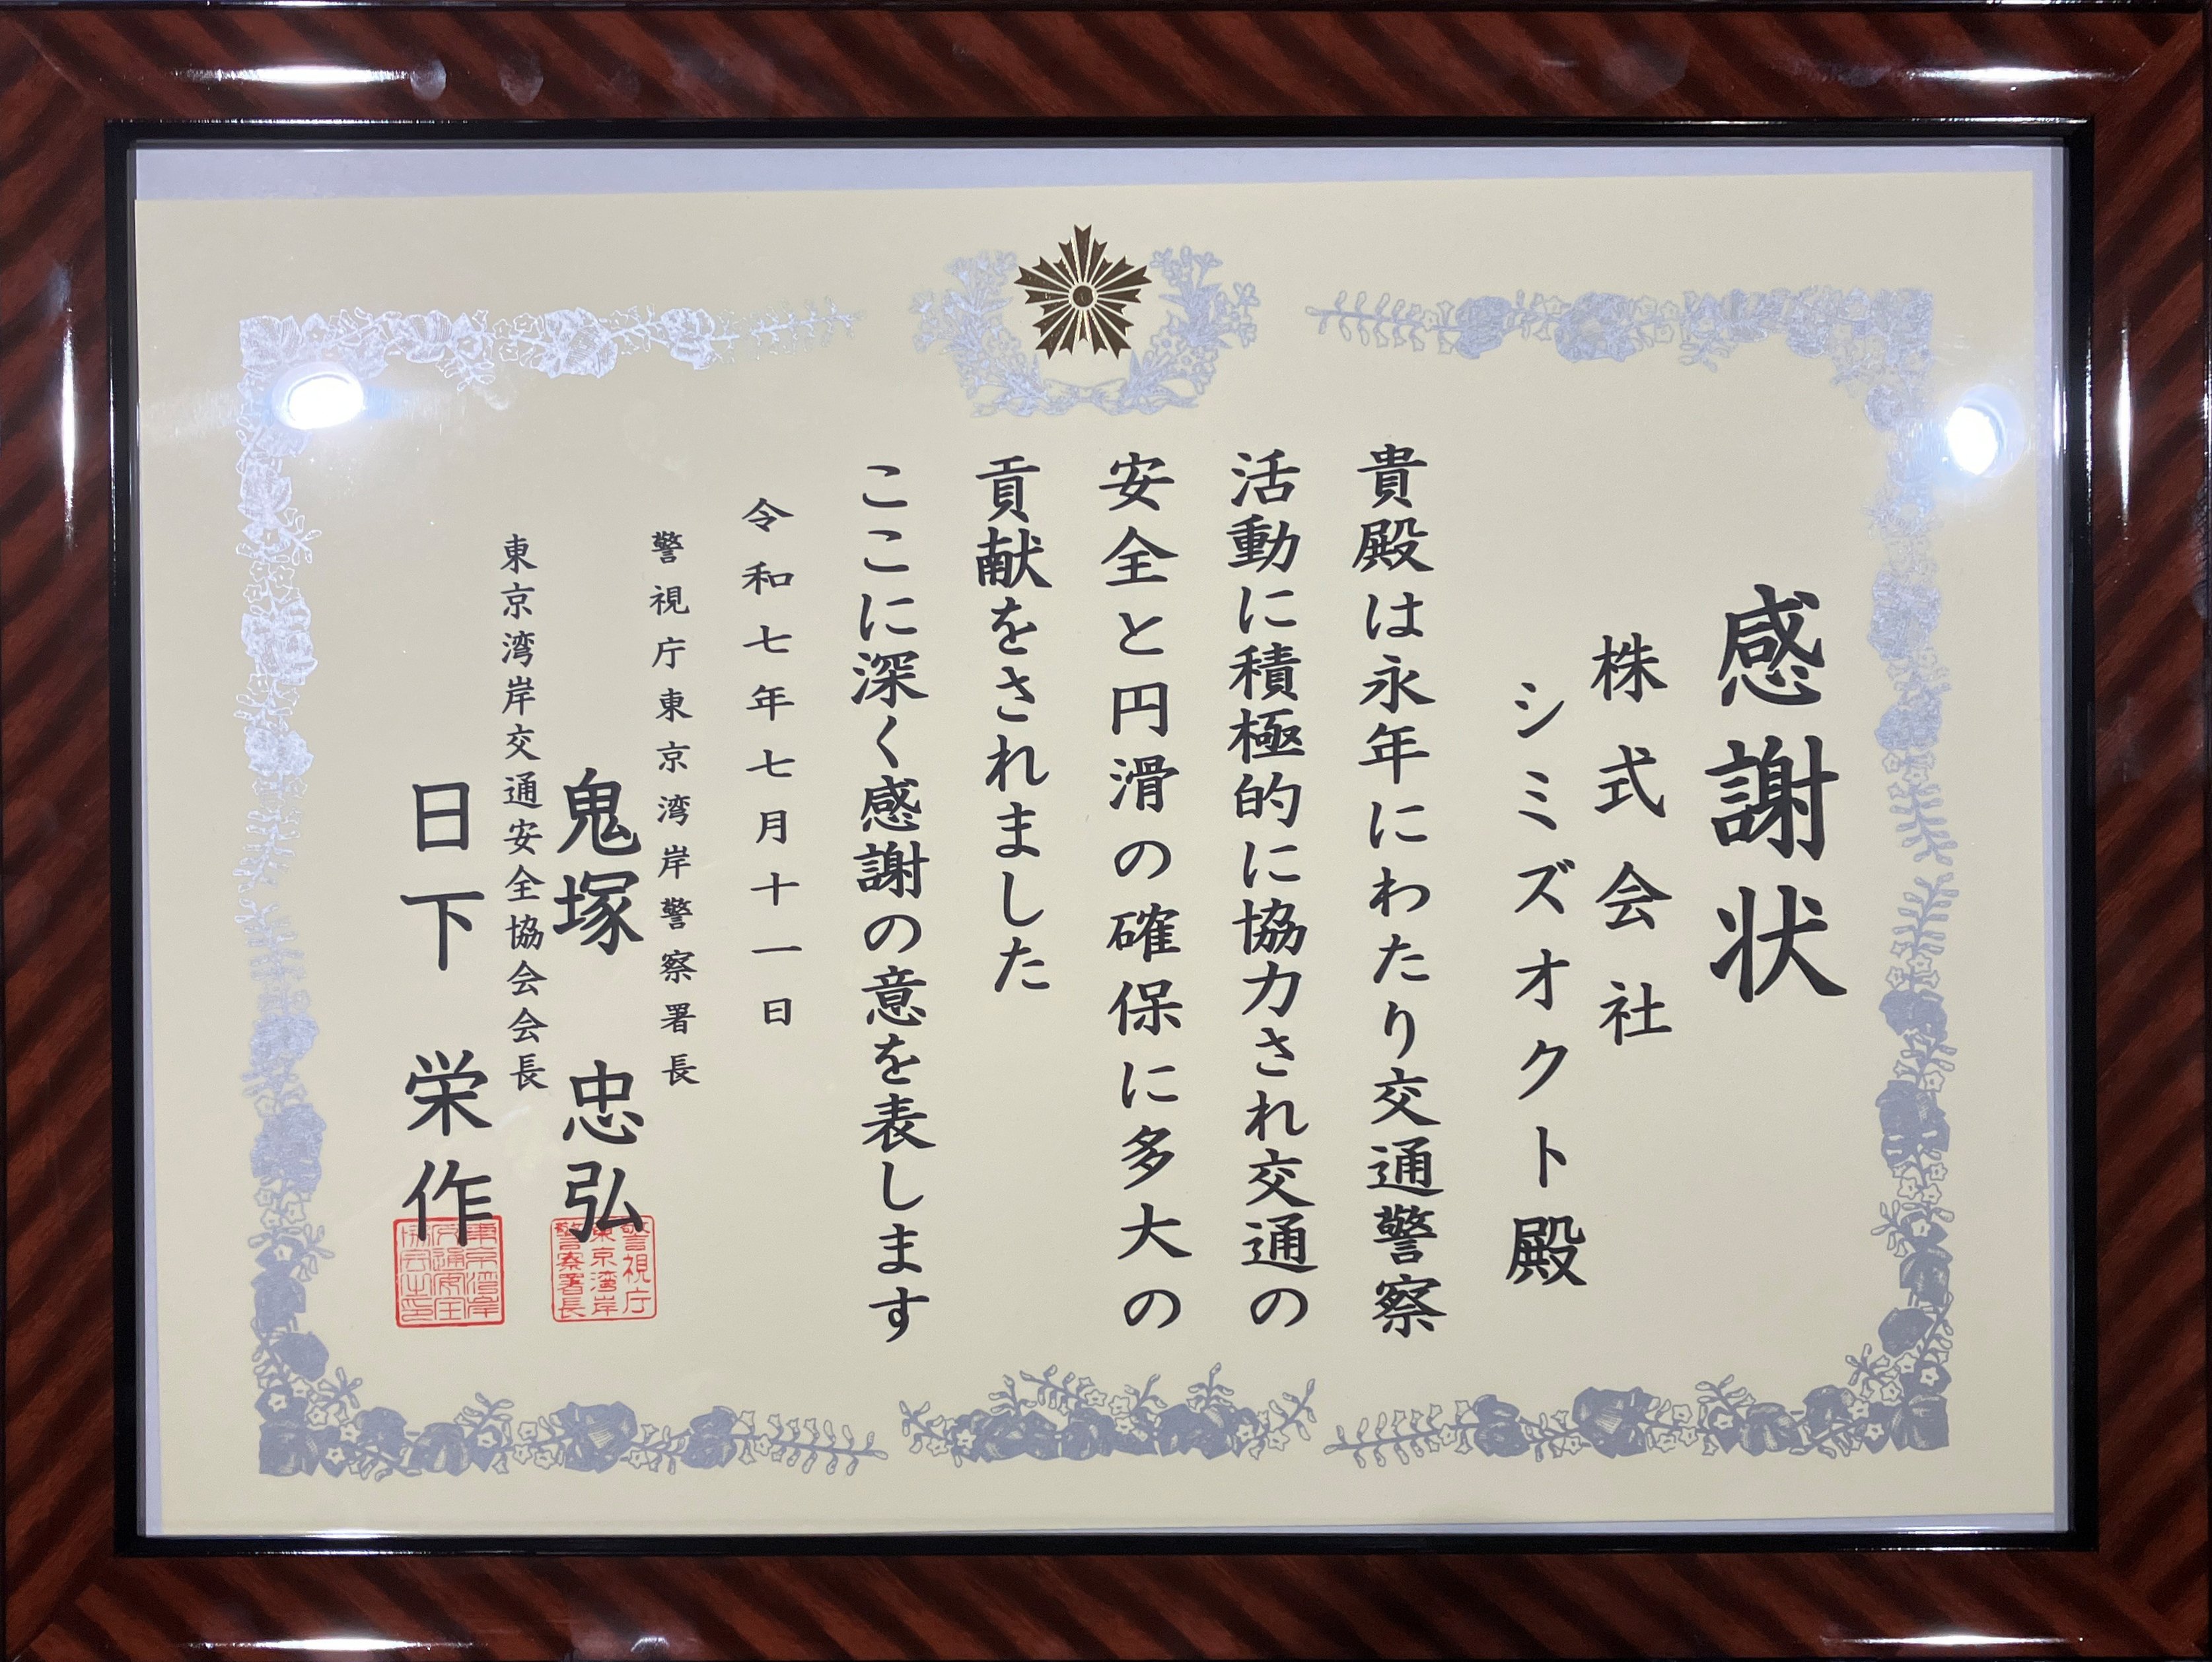 感謝状
株式会社
シミズオクト殿
貴殿は永年にわたり交通警察
活動に積極的に協力され交通の
安全と円滑の確保に多大の
貢献をされました
ここに深く感謝の意を表します
令和七年七月十一日
警視庁東京湾岸警察署長
鬼塚 忠弘
警視庁
東京湾岸
警察署長
東京湾岸交通安全協会会長
日下 栄作
東京湾岸
交通安全
協会之印